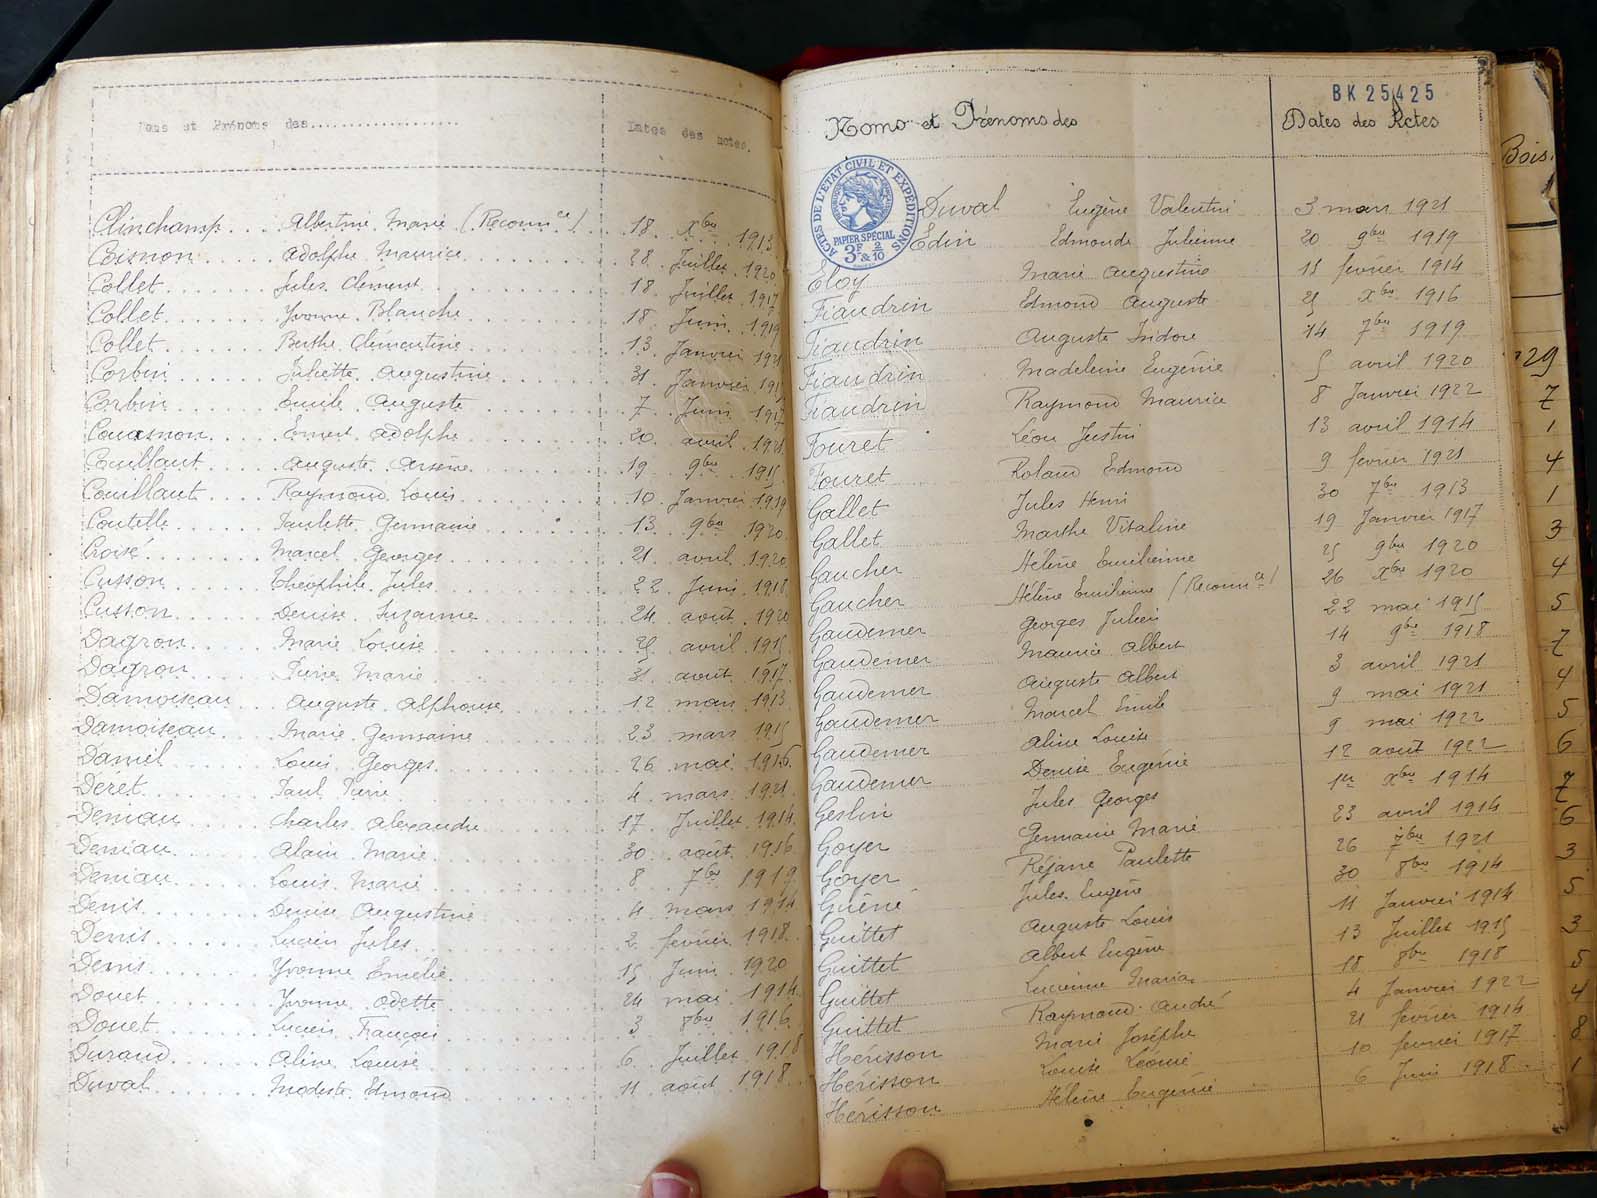 Noms et Prénoms des................... Dates des notes.
Clinchamp... Albertine Marie (Reconn ce) 18 Xbre 1913
Coisnon Adolphe Maurice 28 Juillet 1920
Collet Jules Clément 18 Juillet 1917
Collet Yvonne Blanche 18 Juin 1919
Collet Berthe Clémentine 13 Janvier 1921
Corbin Juliette Augustine 31 Janvier 1915
Corbin Emile Auguste 7 Juin 1917
Couasnon Ernest Adolphe 20 avril 1921
Couillaut Auguste Arsène 19 9bre 1915
Couillaut Raymond Louis 10 Janvier 1919
Coutelle Paulette Germaine 13 9bre 1920
Croisé Marcel Georges 21 avril 1920
Cusson Théophile Jules 22 Juin 1918
Cusson Denise Suzanne 24 août 1920
Dagron Marie Louise 25 avril 1915
Dagron Pierre Marie 31 août 1917
Damoiseau Auguste Alphonse 12 mars 1913
Damoiseau Marie Germaine 23 mars 1915
Daniel Louis Georges 26 mai 1916
Déret Paul Pierre 4 mars 1921
Deniau Charles Alexandre 17 Juillet 1914
Deniau Alain Marie 30 août 1916
Deniau Louis Marie 8 7bre 1919
Denis Denise Augustine 4 mars 1914
Denis Lucien Jules 2 février 1918
Denis Yvonne Emélie 15 Juin 1920
Douet Yvonne Odette 24 mai 1914
Douet Lucien François 3 8bre 1916
Durand Aline Louise 6 Juillet 1918
Duval Modeste Edmond 11 août 1918
BK 25425
Noms et Prénoms des Dates des Actes
ACTES DE L'ETAT CIVIL ET EXPÉDITIONS
PAPIER SPÉCIAL
3F & 2/10
Duval Eugène Valentin 3 mars 1921
Edin Edmonde Julienne 20 9bre 1919
Eloy Marie Augustine 15 février 1914
Fiaudrin Edmond Auguste 25 Xbre 1916
Fiaudrin Auguste Isidore 14 7bre 1919
Fiaudrin Madeleine Eugénie 5 avril 1920
Fiaudrin Raymond Maurice 8 Janvier 1922
Fouret Léon Justin 13 avril 1914
Fouret Roland Edmond 9 février 1921
Gallet Jules Henri 30 7bre 1913
Gallet Marthe Vitaline 19 Janvier 1917
Gaucher Hélène Emilienne 25 9bre 1920
Gaucher Hélène Emilienne (Reconn ce) 26 Xbre 1920
Gaudemer Georges Julien 22 mai 1915
Gaudemer Maurice Albert 14 9bre 1918
Gaudemer Auguste Albert 3 avril 1921
Gaudemer Marcel Emile 9 mai 1921
Gaudemer Aline Louise 9 mai 1922
Gaudemer Denise Eugénie 12 août 1922
Geslin Jules Georges 1er Xbre 1914
Goyer Germaine Marie 23 avril 1914
Goyer Réjane Paulette 26 7bre 1921
Guéné Jules Eugène 30 8bre 1914
Guittet Auguste Louis 11 Janvier 1914
Guittet Albert Eugène 13 Juillet 1915
Guittet Lucienne Maria 18 8bre 1918
Guittet Raymond André 4 Janvier 1922
Hérisson Marie Josèphe 21 février 1914
Hérisson Louise Léonie 10 février 1917
Hérisson Hélène Eugénie 6 Juin 1918
Bois
29
7
1
4
1
3
4
5
7
4
5
6
7
6
3
5
3
5
4
8
1